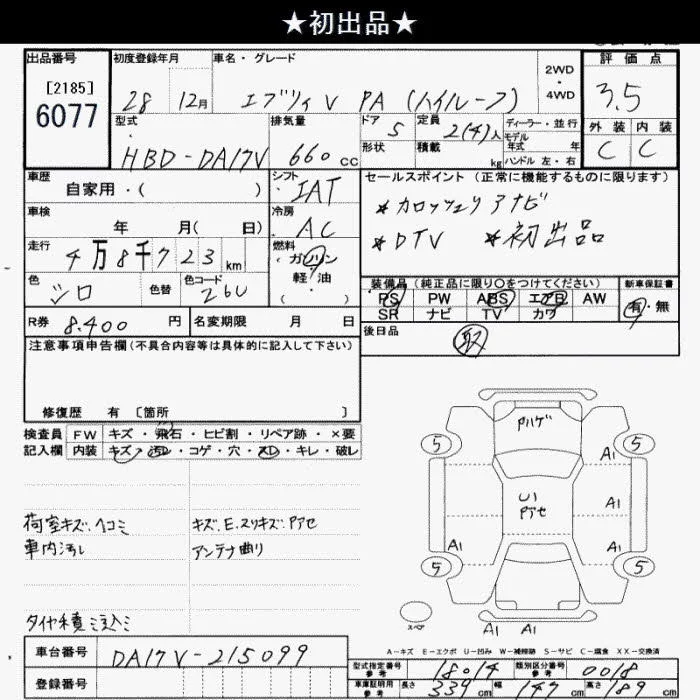 ★初出品★
出品番号
[2185]
6077
初度登録年月
28 12月
車名・グレード
エブリィV PA (ハイルーフ)
2WD
・
4WD
評価点
3.5
外装 内装
C C
型式
HBD-DA17V
排気量
660 cc
ドア 5
形状
定員 2(4)人
積載 kg
ディーラー・並行
モデル
年式 年
ハンドル 左・右
車歴
自家用・( )
シフト
IAT
車検
年 月( 日)
冷房
AC
走行
4万8千723km
燃料
ガソリン
軽・油
( ・ )
色
シロ
色替
色コード
26U
R券 8.400 円
名変期限 月 日
セールスポイント (正常に機能するものに限ります)
*カロッツェリアナビ
*DTV *初出品
装備品(純正品に限り○をつけてください)
PS PW ABS エアB AW
SR ナビ TV カワ
新車保証書
有・無
後日品
取
注意事項申告欄(不具合内容等は具体的に記入して下さい)
修復歴 有 〔箇所 〕
検査員 FW キズ・飛石・ヒビ割・リペア跡・×要
記入欄 内装 キズ・汚レ・コゲ・穴・スレ・キレ・破レ
荷室キズ.ヘコミ
車内汚レ
キズ.E.スリキズ.Pアセ
アンテナ曲リ
タイヤ積ミ込ミ
Pハゲ
5 5
A1
U1
Pアセ
A1
A1 A1
5 5
スペア
A1 A1
A－キズ E－エクボ U－凹み W－補修跡 S－サビ C－腐食 XX－交換済
車台番号 DA17V-215099
登録番号
型式指定番号
参考
18014
類別区分番号
参考
0018
車庫証明用
参考
長さ 339cm 幅 147cm 高さ 189cm